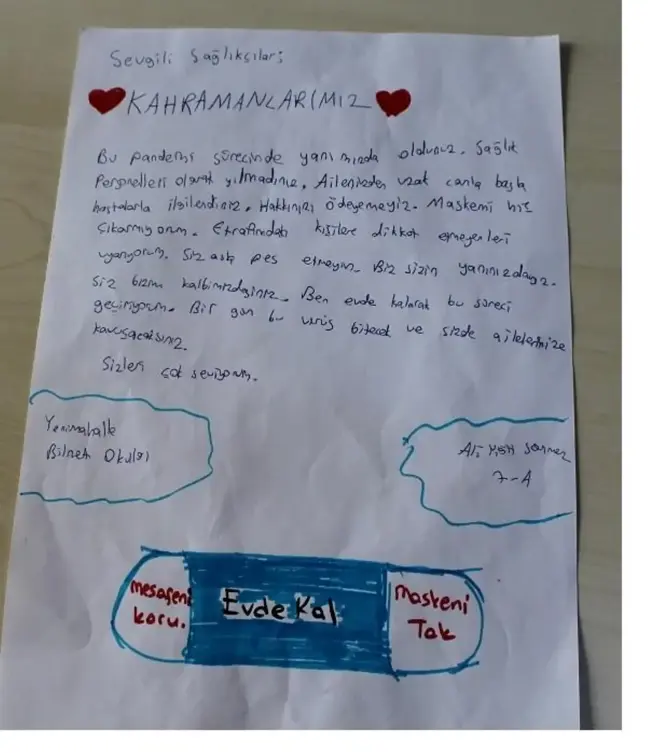 Sevgili Sağlıkçılar;
KAHRAMANLARIMIZ
Bu pandemi sürecinde yanımızda oldunuz. Sağlık
Personelleri olarak yılmadınız. Ailenizden uzak canla başla
hastalarla ilgilendiniz. Hakkınızı ödeyemeyiz. Maskemi hiç
Çıkarmıyorum. Etrafımdaki kişilere dikkat etmeyenleri
uyarıyorum. Siz asla pes etmeyin. Biz sizin yanınızdayız.
Siz bizim kalbimizdesiniz. Ben evde kalarak bu süreci
geçiriyorum. Bir gün bu virüs bitecek ve sizde ailelerinize
kavuşacaksınız.
Sizleri çok seviyorum.
Yenimahalle
Bilnet Okulları
Ali
7-A
mesafeni
koru.
Evde Kal
Maskeni
Tak